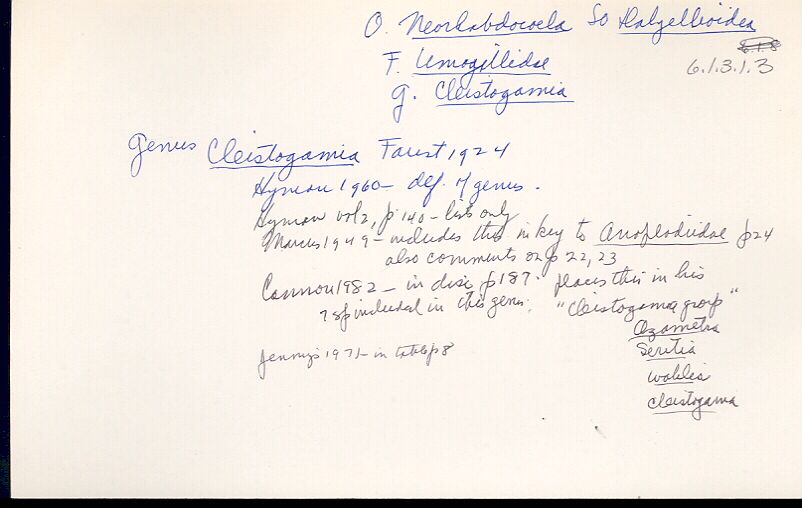 O. Neorhabdocoela So Dalyellioidea
6.1.8
6.1.3.1.3
F. Umagillidae
G. Cleistogamia
Genus Cleistogamia Faust 1924
Hyman 1960 - def. of genus.
Hyman vol 2, p 140 - lists only
Marcus 1949 - includes this in key to Anoplodiidae p 24
also comments on p 22, 23
Cannon 1982 - in disc p 187. places this in his
7 sp included in this genus. "Cleistogama group"
Ozametra
Seritia
Wahlia
Cleistogama
Jennings 1971 - in table p 8